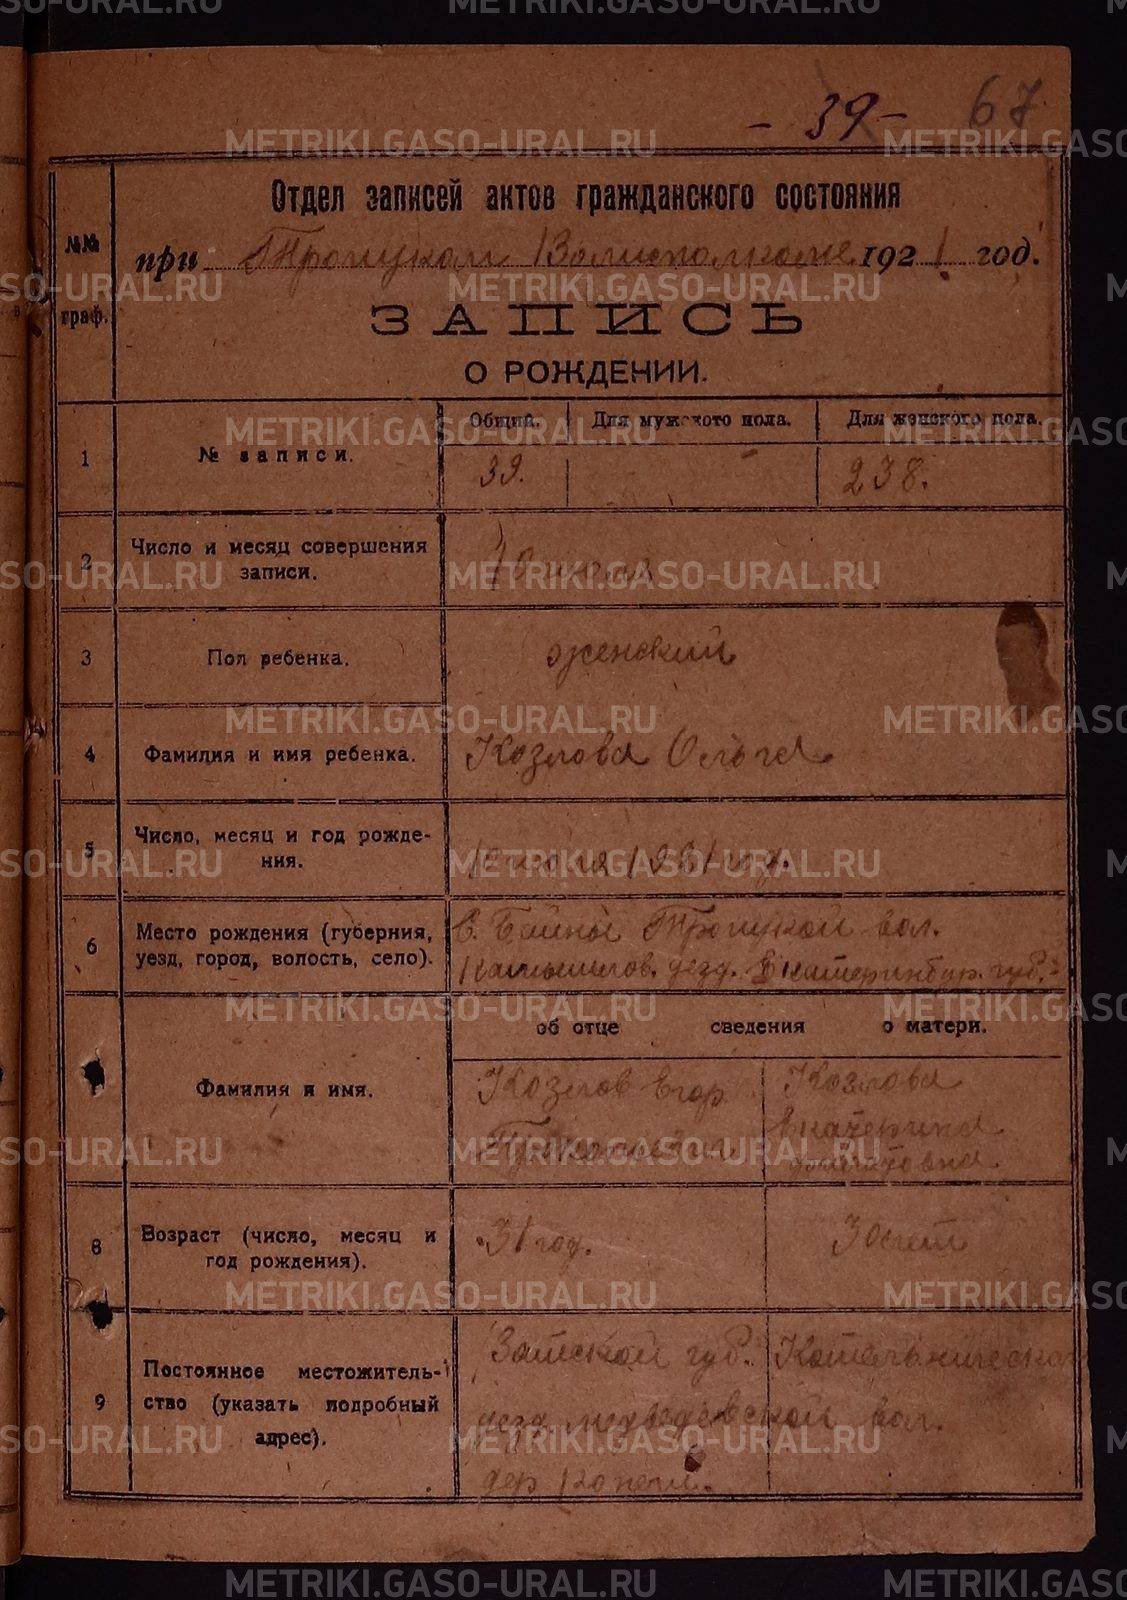 - 39 - 67
Отдел записей актов гражданского состояния
при Троицком Волисполкоме 1921 год.
№№ граф.
ЗАПИСЬ
О РОЖДЕНИИ.
Общий. Для мужского пола. Для женского пола.
1 № записи. 39. - 238.
2 Число и месяц совершения
записи. 10 июля
3 Пол ребенка. женский
4 Фамилия и имя ребенка. Козлова Ольга
5 Число, месяц и год рожде-
ния. 1921 год.
6 Место рождения (губерния,
уезд, город, волость, село).
С. Байны Троицкой вол.
Камышлов. уезд. Екатеринбур. губ.
об отце сведения о матери.
Фамилия и имя.
Козлов Егор Козлова
Екатерина
8 Возраст (число, месяц и
год рождения).
31 год. 30 лет
9 Постоянное местожитель-
ство (указать подробный
адрес).
губ. Котельническая
уезд. Медведевской вол.
дер
METRIKI.GASO-URAL.RU